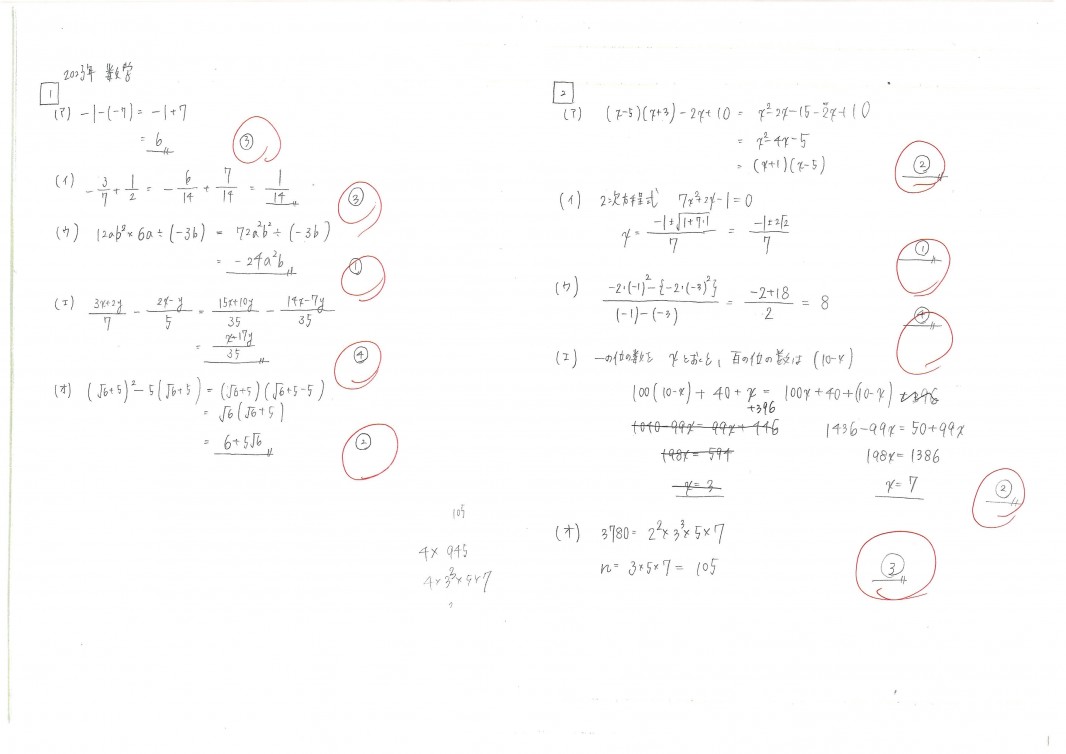 2023年 数学
1
(ア) -1-(-7) = -1+7
= 6
③
(イ) -3/7 + 1/2 = -6/14 + 7/14 = 1/14
③
(ウ) 12ab²×6a÷(-3b) = 72a²b²÷(-3b)
= -24a²b
①
(エ) 3x+2y/7 - 2x-y/5 = 15x+10y/35 - 14x-7y/35
= x+17y/35
④
(オ) (√6+5)²-5(√6+5) = (√6+5)(√6+5-5)
= √6(√6+5)
= 6+5√6
②
105
4× 945
4×3³×5×7
2
(ア) (x-5)(x+3)-2x+10 = x²-2x-15-2x+10
= x²-4x-5
= (x+1)(x-5)
②
(イ) 2次方程式 7x²+2x-1=0
x = -1±√1+7·1/7 = -1±2√2/7
①
(ウ) -2·(-1)²-{-2·(-3)²}/(-1)-(-3) = -2+18/2 = 8
④
(エ) 一の位の数を xとおくと, 百の位の数は (10-x)
100(10-x)+40+x = 100x+40+(10-x) +396
+396
1040-99x = 99x+446 1436-99x = 50+99x
198x = 594 198x = 1386
x = 3 x = 7
②
(オ) 3780 = 2²×3³×5×7
n = 3×5×7 = 105
③